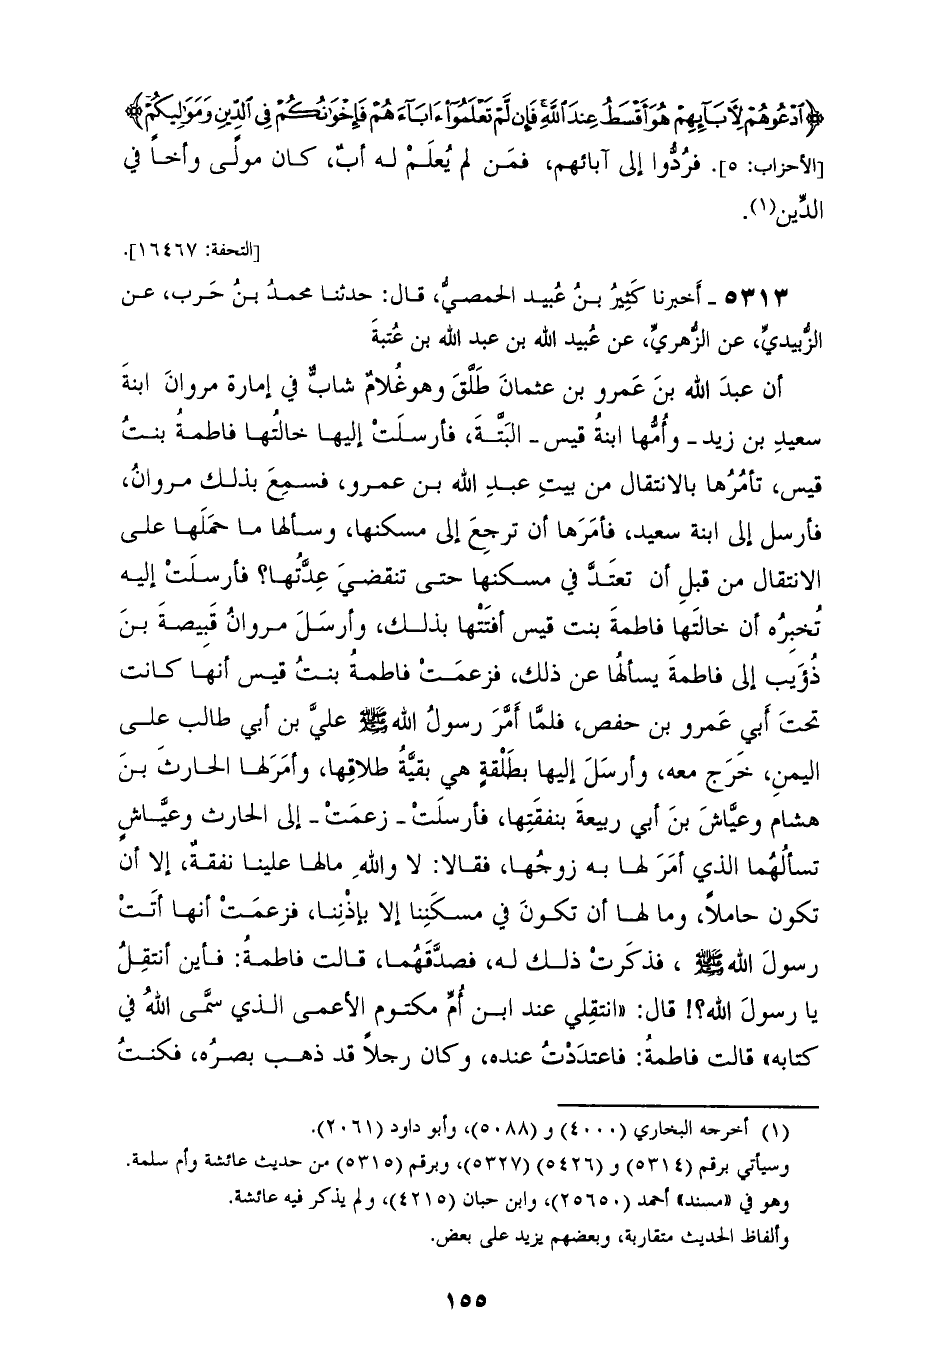 ﴿ٱدْعُوهُمْ لِأَبَآئِهِمْ هُوَ أَقْسَطُ عِندَ ٱللَّهِ فَإِن لَّمْ تَعْلَمُوٓا۟ ءَابَآءَهُمْ فَإِخْوَٰنُكُمْ فِى ٱلدِّينِ وَمَوَٰلِيكُمْ﴾
[الأحزاب: ٥]. فرُدُّوا إلى آبائهم، فمَن لم يُعلَمْ له أبٌ، كان مولًى وأخاً في
الدِّين(١).
[التحفة: ١٦٤٦٧].
٥٣١٣ ـ أَخبرنا كَثِيرُ بنُ عُبيد الحمصيُّ، قال: حدثنا محمدُ بنُ حَرب، عن
الزُّبيديِّ، عن الزُّهريِّ، عن عُبيد الله بن عبد الله بن عُتبةَ
أن عبدَ الله بنَ عَمرو بن عثمانَ طَلَّقَ وهو غُلامٌ شابٌّ في إمارة مروانَ ابنةَ
سعيدِ بن زيد ـ وأُمُّها ابنةُ قيس ـ البَتَّةَ، فأرسلَتْ إليها خالتُها فاطمةُ بنتُ
قيس، تأمُرُها بالانتقال من بيتِ عبدِ الله بن عمرو، فسمِعَ بذلك مروانُ،
فأرسل إلى ابنة سعيد، فأمَرَها أن ترجعَ إلى مسكنها، وسألها ما حَمَلَها على
الانتقال من قبلِ أن تعتَدَّ في مسكنها حتى تنقضيَ عِدَّتُها؟ فأرسلَتْ إليه
تُخبِرُه أن خالتَها فاطمةَ بنت قيس أفتَتْها بذلك، وأرسَلَ مروانُ قَبِيصةَ بنَ
ذُؤَيب إلى فاطمةَ يسألُها عن ذلك، فزعمَتْ فاطمةُ بنتُ قيس أنها كانت
تحتَ أَبي عَمرو بن حفص، فلمَّا أَمَّرَ رسولُ الله ﷺ عليَّ بن أبي طالب على
اليمنِ، خَرَج معه، وأرسَلَ إليها بطَلْقةٍ هي بقيَّةُ طلاقِها، وأمَرَ لها الحارثَ بنَ
هشام وعيَّاشَ بنَ أبي ربيعةَ بنفقَتِها، فأرسلَتْ ـ زعمَتْ ـ إلى الحارث وعيَّاشٍ
تسألُهُما الذي أمَرَ لها به زوجُها، فقالا: لا واللهِ مالها علينا نفقةٌ، إلا أن
تكون حاملاً، وما لها أن تكونَ في مسكَنِنا إلا بإذْنِنا، فزعمَتْ أنها أتَتْ
رسولَ الله ﷺ ، فذكَرتْ ذلك له، فصدَّقَهُما، قالت فاطمةُ: فأين أنتقِلُ
يا رسولَ الله؟! قال: «انتقِلي عند ابن أُمِّ مكتوم الأعمى الذي سمَّى اللهُ في
كتابه» قالت فاطمةُ: فاعتدَدْتُ عنده، وكان رجلاً قد ذهب بصرُه، فكنتُ
(١) أخرجه البخاري (٤٠٠٠) و (٥٠٨٨)، وأبو داود (٢٠٦١).
وسيأتي برقم (٥٣١٤) و (٥٤٢٦) (٥٣٢٧)، وبرقم (٥٣١٥) من حديث عائشة وأم سلمة.
وهو في «مسند» أحمد (٢٥٦٥٠)، وابن حبان (٤٢١٥)، ولم يذكر فيه عائشة.
وألفاظ الحديث متقاربة، وبعضهم يزيد على بعض.
١٥٥